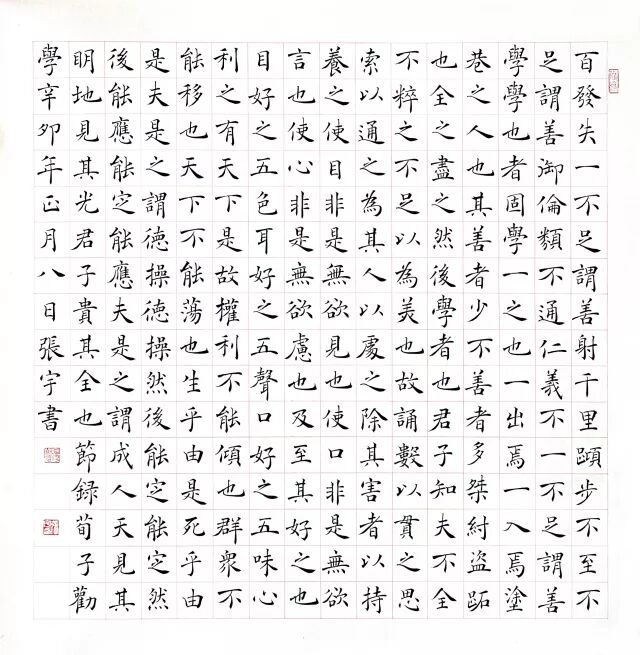 百發失一不足謂善射千里蹞步不至不
足謂善御倫類不通仁義不一不足謂善
學學也者固學一之也一出焉一入焉塗
巷之人也其善者少不善者多桀紂盜跖
也全之盡之然後學者也君子知夫不全
不粹之不足以為美也故誦數以貫之思
索以通之為其人以處之除其害者以持
養之使目非是無欲見也使口非是無欲
言也使心非是無欲慮也及至其好之也
目好之五色耳好之五聲口好之五味心
利之有天下是故權利不能傾也群眾不
能移也天下不能蕩也生乎由是死乎由
是夫是之謂德操德操然後能定能定然
後能應能定能應夫是之謂成人天見其
明地見其光君子貴其全也節録荀子勸
學辛卯年正月八日張宇書